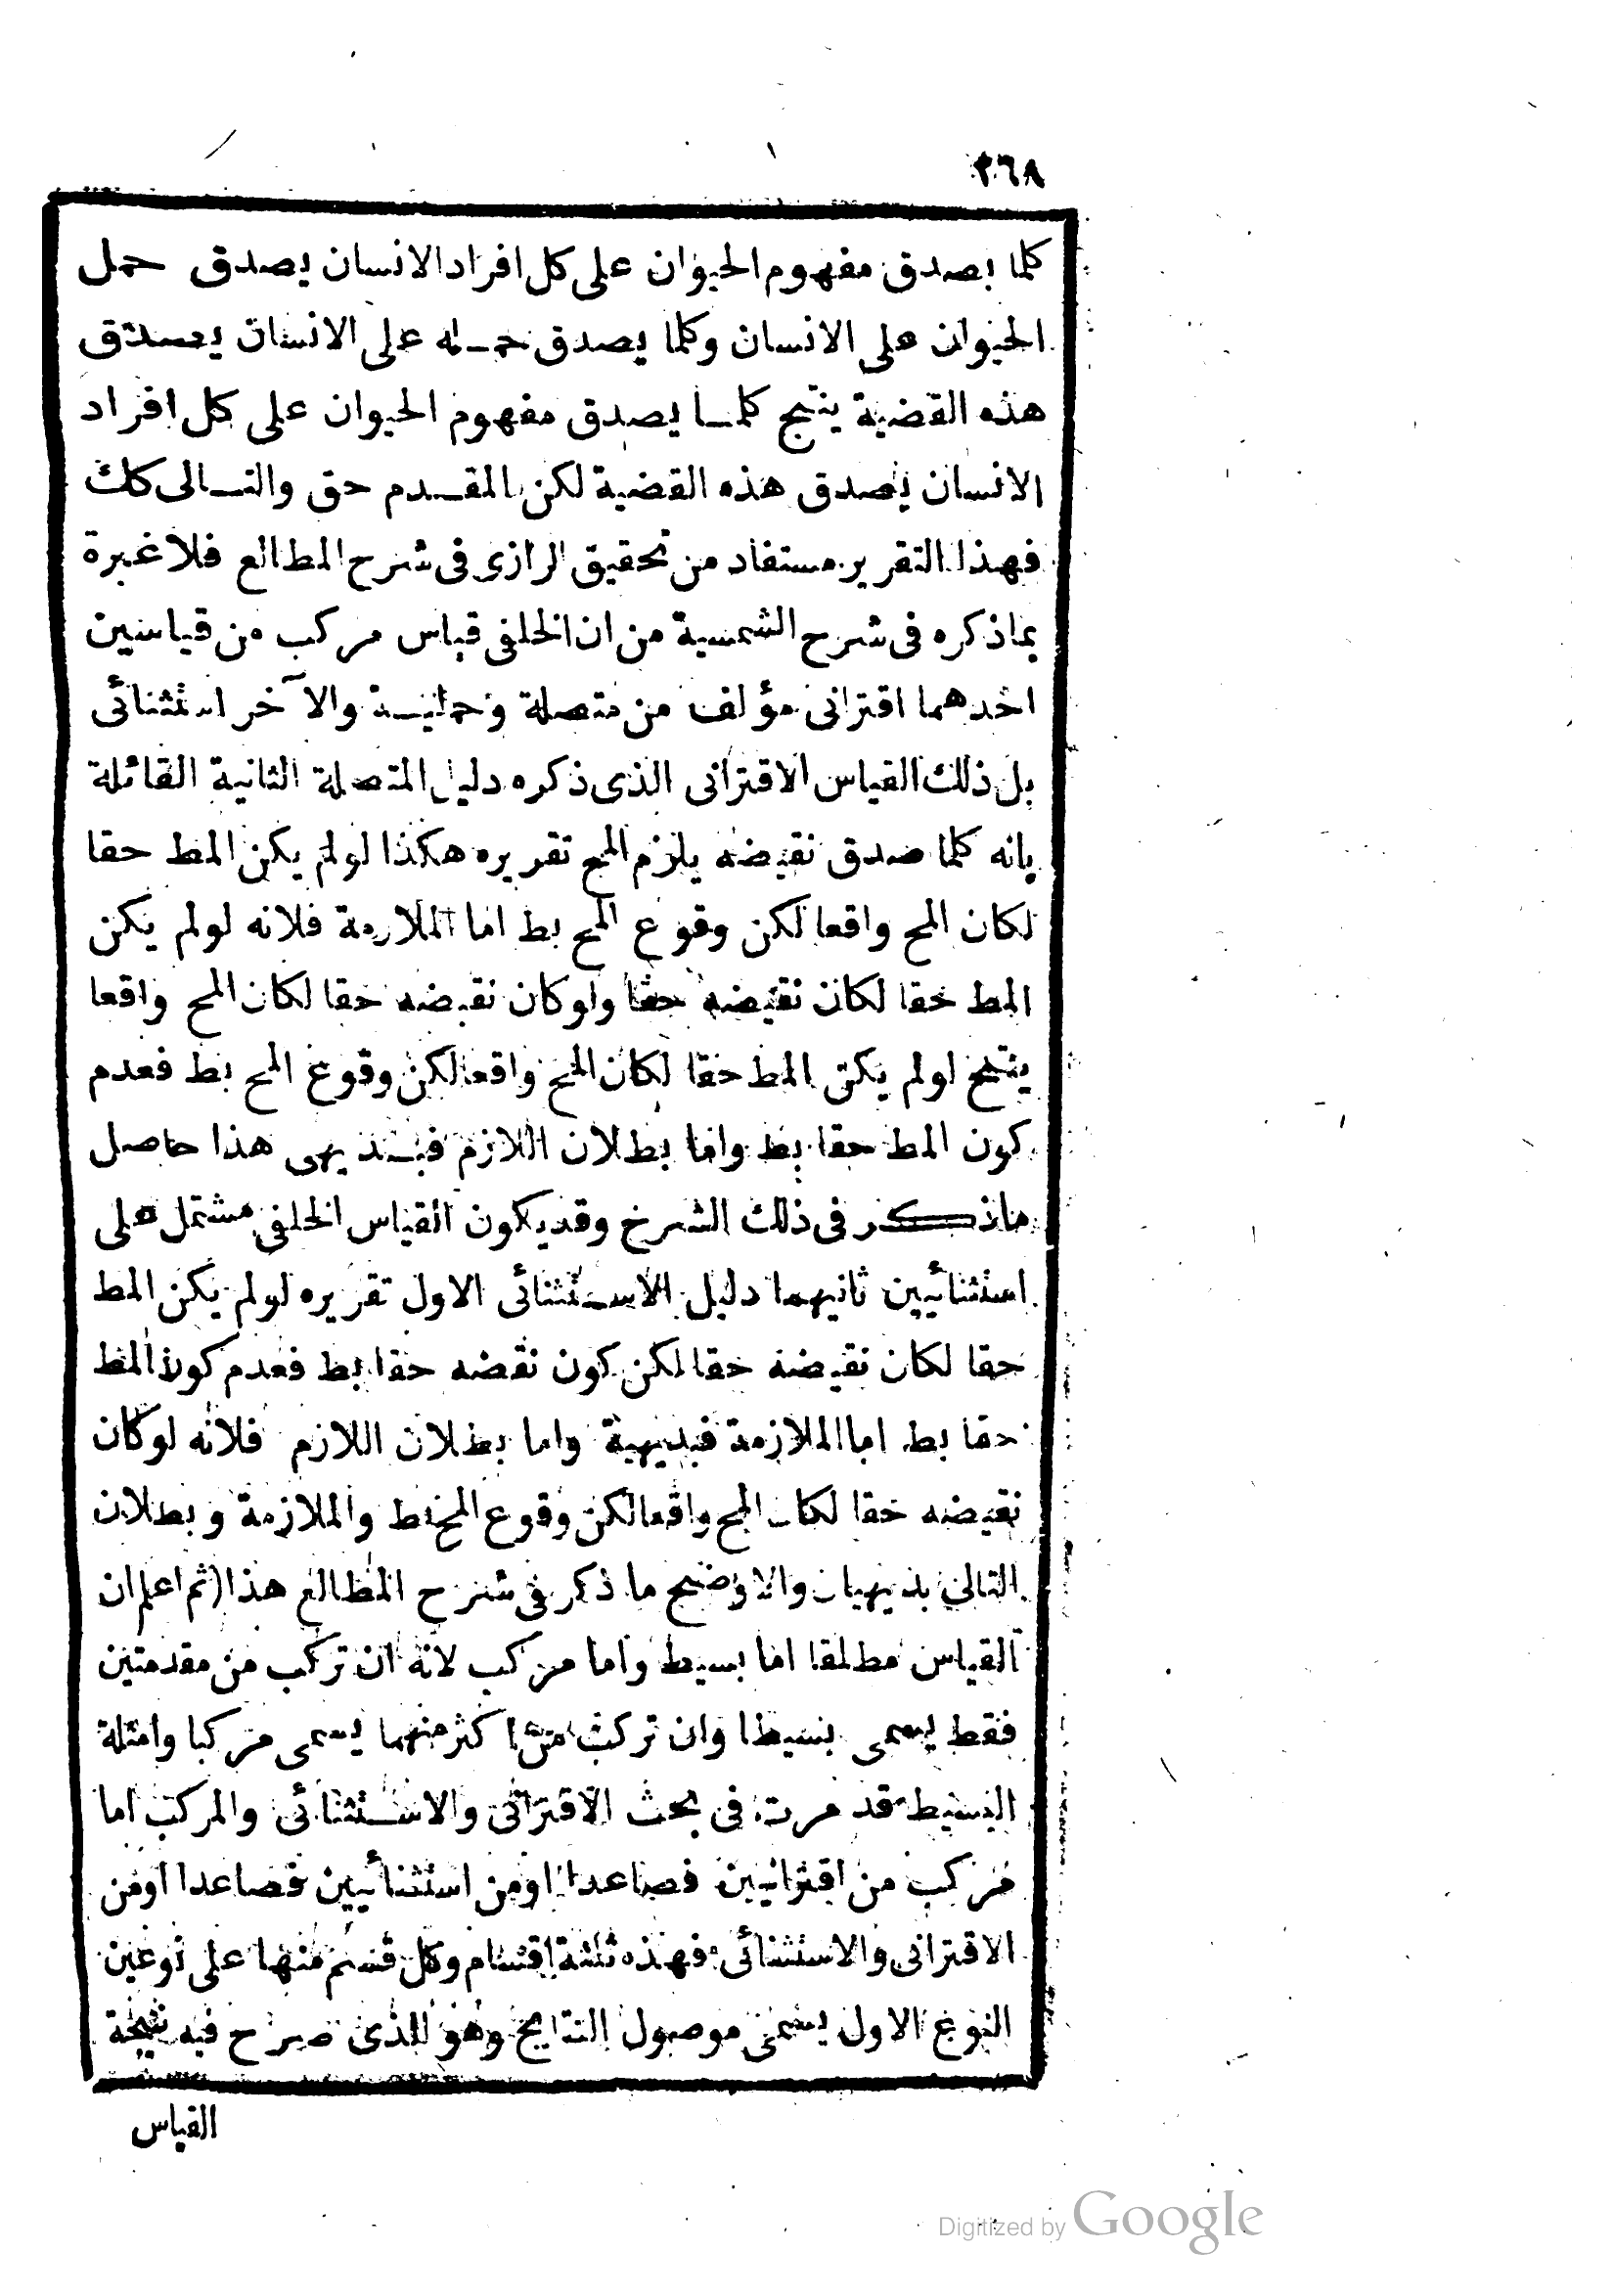 ٣٦٨
كلما يصدق مفهوم الحيوان على كل افراد الانسان يصدق حمل
الحيوان على الانسان وكلما يصدق حمله على الانسان يصدق
هذه القضية ينتج كلما يصدق مفهوم الحيوان على كل افراد
الانسان يصدق هذه القضية لكن المقدم حق والتالى كك
فهذا التقرير مستفاد من تحقيق الرازى فى شرح المطالع فلا عبرة
بما ذكره فى شرح الشمسية من ان الخلفى قياس مركب من قياسين
احدهما اقترانى مؤلف من متصلة وحملية والآخر استثنائى
بل ذلك القياس الاقترانى الذى ذكره دليل المتصلة الثانية القائلة
بانه كلما صدق نقيضه يلزم المح تقريره هكذا لو لم يكن المط حقا
لكان المح واقعا لكن وقوع المح بط اما الملازمة فلانه لو لم يكن
المط حقا لكان نقيضه حقا ولو كان نقيضه حقا لكان المح واقعا
ينتج لو لم يكن المط حقا لكان المح واقعا لكن وقوع المح بط فعدم
كون المط حقا بط واما بطلان اللازم فبديهى هذا حاصل
ماذكر فى ذلك الشرح وقد يكون القياس الخلفى مشتمل على
استثنائيين ثانيهما دليل الاستثنائى الاول تقريره لو لم يكن المط
حقا لكان نقيضه حقا لكن كون نقضه حقا بط فعدم كون المط
حقا بط اما الملازمة فبديهية واما بطلان اللازم فلانه لو كان
نقيضه حقا لكان المح واقعا لكن وقوع المح بط والملازمة وبطلان
التالى بديهيان والاوضح ما ذكر فى شرح المطالع هذا (ثم اعلم ان
القياس مطلقا اما بسيط واما مركب لانه ان تركب من مقدمتين
فقط يسمى بسيطا وان تركب من اكثر منهما يسمى مركبا وامثلة
البسيط قد مرت فى بحث الاقترانى والاستثنائى والمركب اما
مركب من اقترانيين فصاعدا او من استثنائيين فصاعدا او من
الاقترانى والاستثنائى فهذه ثلثة اقسام وكل قسم منها على نوعين
النوع الاول يسمى موصول النتايج وهو الذى صرح فيه نتيجة
القياس
Digitized by Google